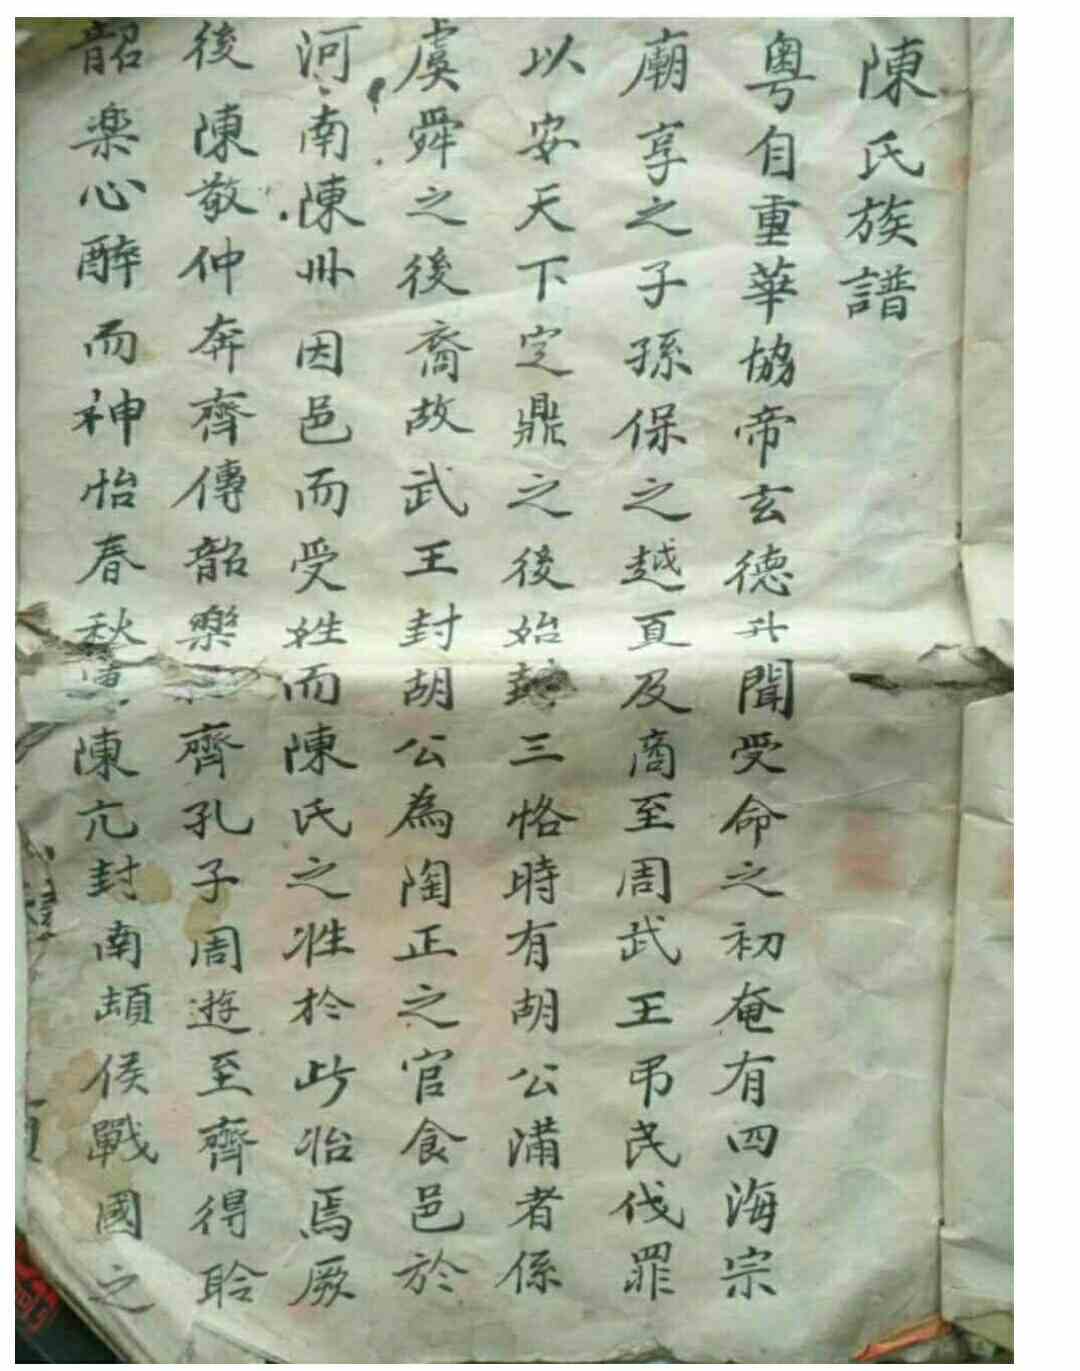 陳氏族譜
粵自重華協帝玄德升聞受命之初奄有四海宗
廟享之子孫保之越夏及商至周武王弔民伐罪
以安天下定鼎之後始封三恪時有胡公滿者係
虞舜之後裔故武王封胡公為陶正之官食邑於
河南陳州因邑而受姓而陳氏之姓於此始焉厥
後陳敬仲奔齊傳韶樂齊孔子周遊至齊得聆
韶楽心醉而神怡春秋陳亢封南頓侯戰國之